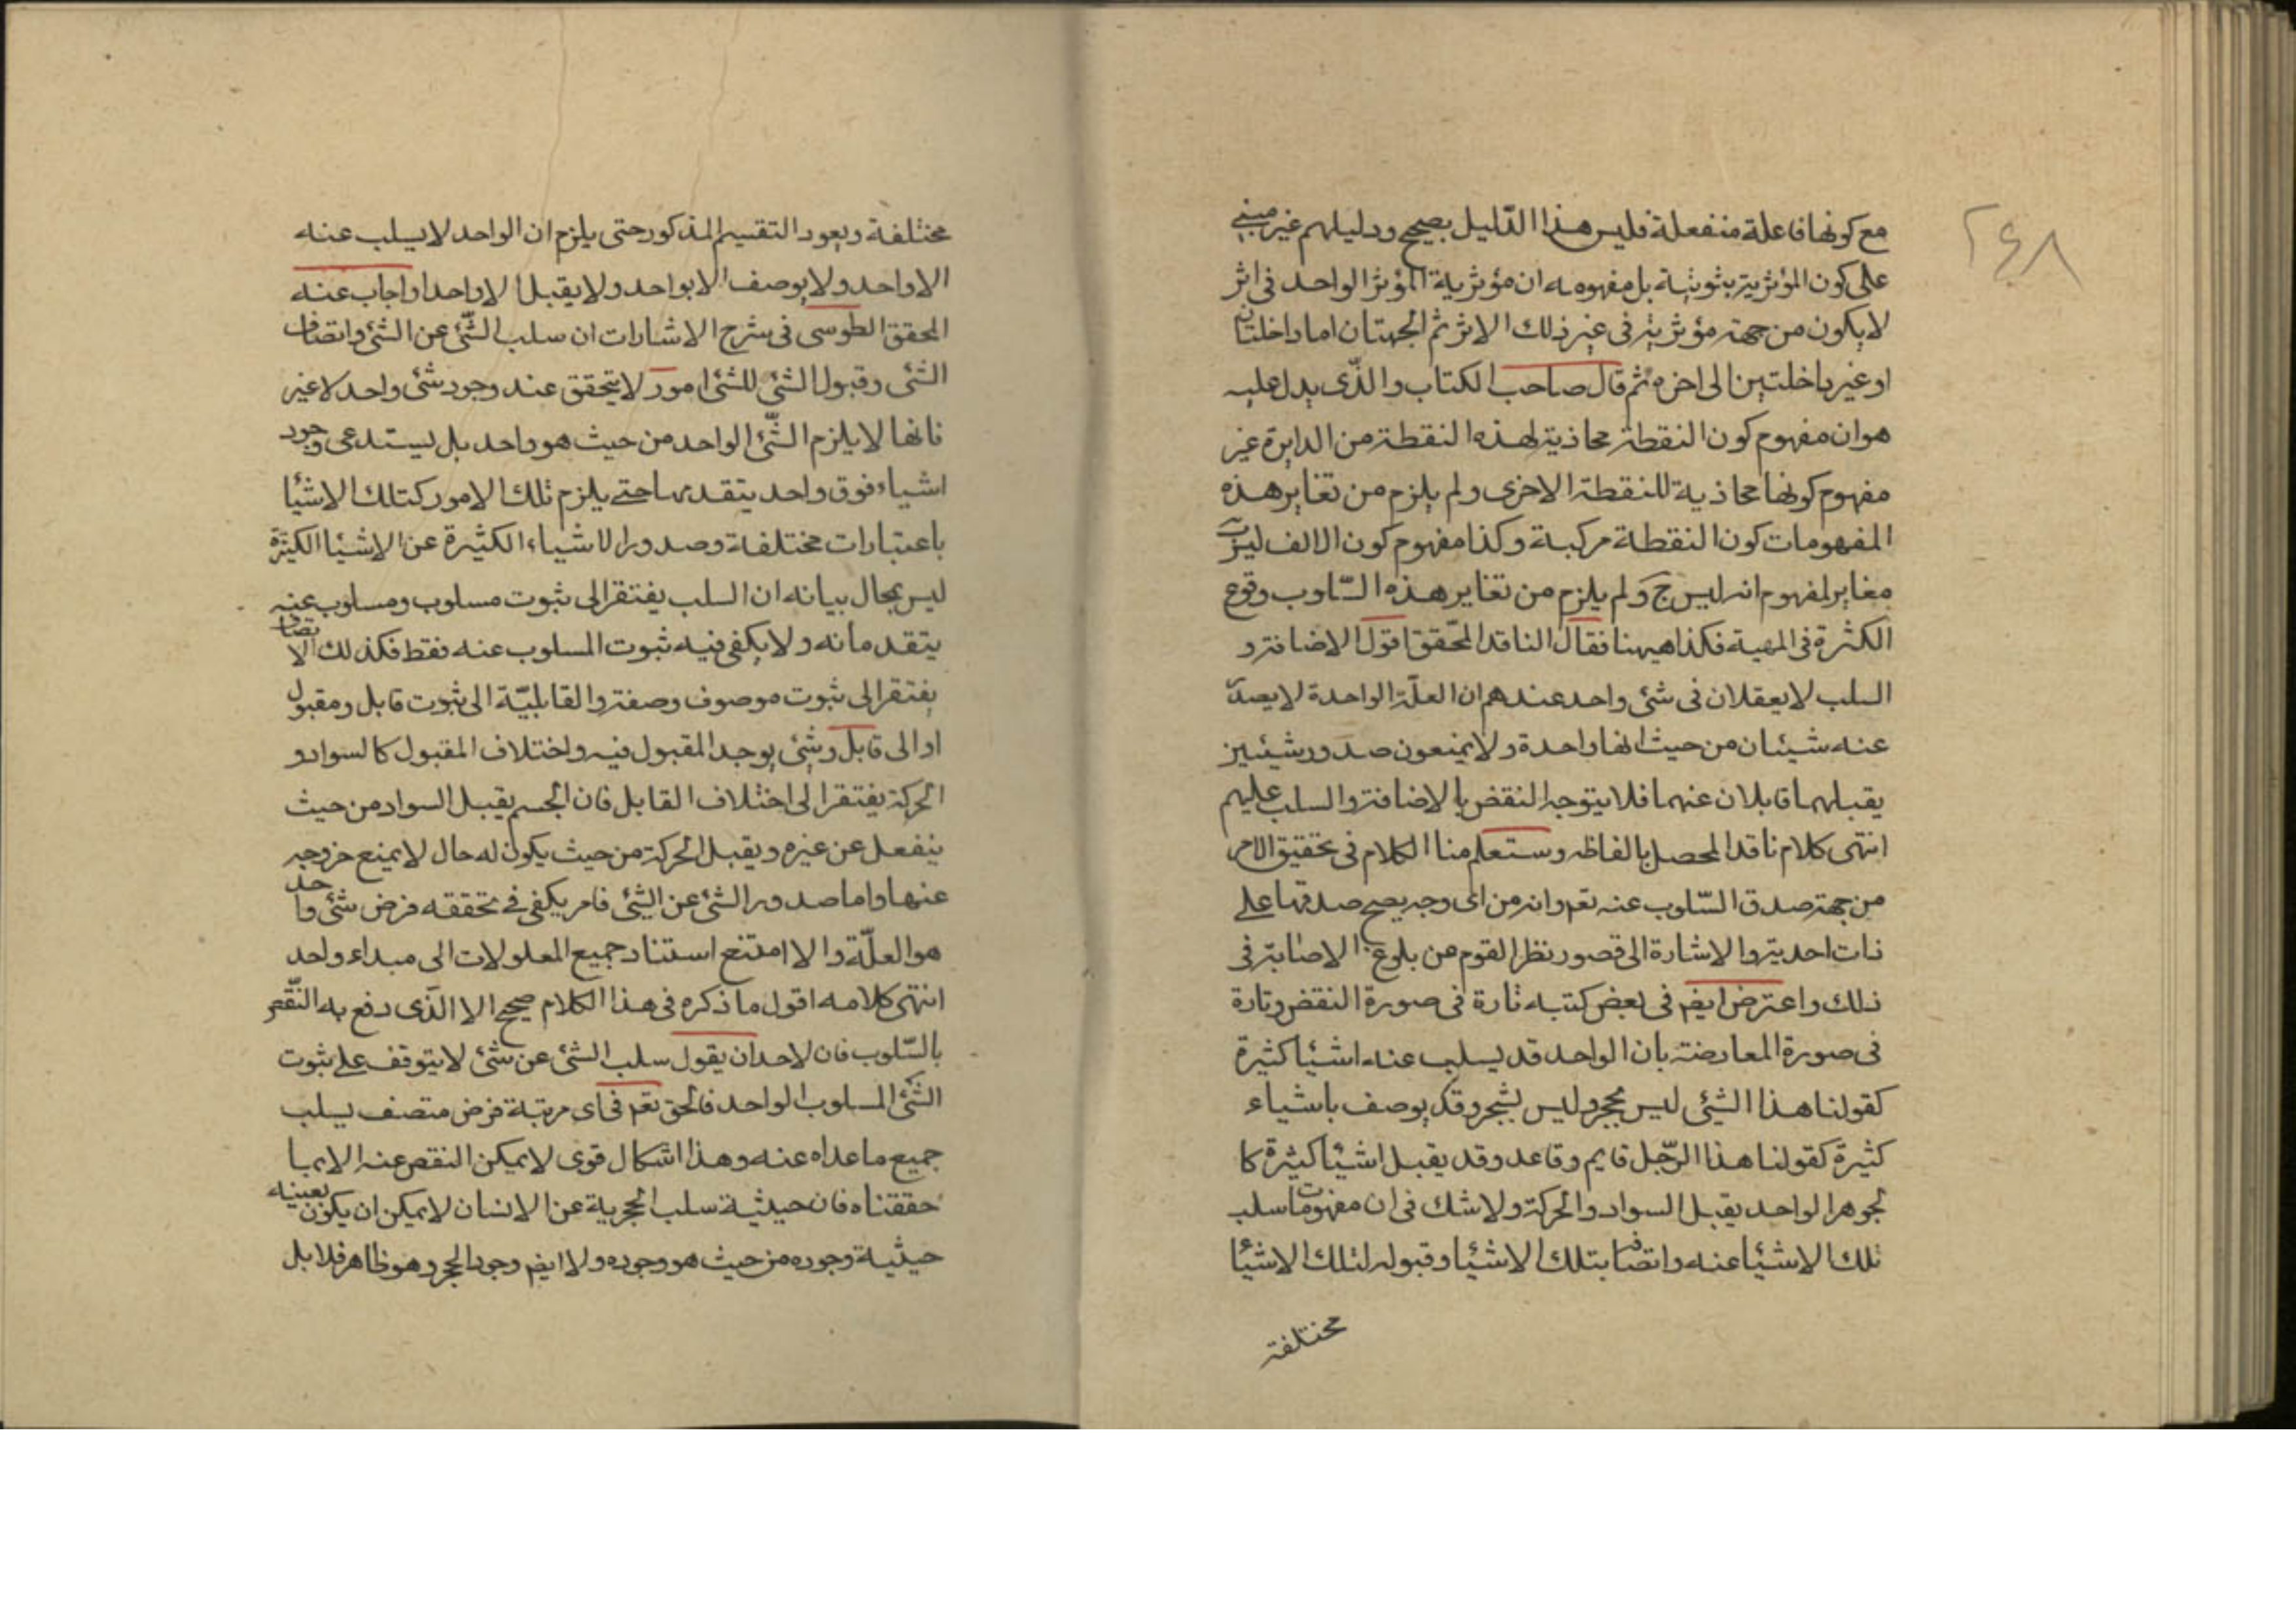 ٢٤٨
مع كونها فاعلة منفعلة فليس هذا الدّليل بصحيح ودليلهم غير مبني
على كون المؤثرية ثبوتية بل مفهومه ان مؤثرية المؤثر الواحد فى اثر
لا يكون من جهة مؤثريته فى غير ذلك الاثر ثم الجهتان اما داخلتان
او غير داخلتين الى اخره ثم قال صاحب الكتاب والذّى يدل عليه
هو ان مفهوم كون النقطة محاذية لهذه النقطة من الدايرة غير
مفهوم كونها محاذية للنقطة الاخرى ولم يلزم من تغاير هذه
المفهومات كون النقطة مركبة وكذا مفهوم كون الالف ليس ب
مغاير لمفهوم انه ليس ج ولم يلزم من تغاير هذه السّلوب وقوع
الكثرة فى المهية فكذا هيهنا فقال الناقد المحّقق اقول الاضافة و
السلب لا يعقلان فى شئ واحد عندهم ان العلّة الواحدة لا يصدر
عنه شيئان من حيث انها واحدة ولا يمنعون صدور شيئين
يقبلهما قابلان عنهما فلا يتوجه النقض بالاضافة والسلب عليهم
انتهى كلام ناقد المحصل بالفاظه وستعلم منا الكلام فى تحقيق الامر
من جهة صدق السّلوب عنه تعم وانه من اى وجه يصح صدقها على
ذات احدية والاشارة الى قصور نظر القوم من بلوغ الاصابة فى
ذلك واعترض ايضم فى بعض كتبه تارة فى صورة النقض وتارة
فى صورة المعارضة بان الواحد قد يسلب عنه اشيئا كثيرة
كقولنا هذا الشئ ليس بحجر وليس بشجر وقد يوصف باشياء
كثيرة كقولنا هذا الرّجل قايم وقاعد وقد يقبل اشيئا كثيرة كا
لجوهر الواحد يقبل السواد والحركة ولا شك فى ان مفهومات سلب
تلك الاشيئا عنه واتصافه بتلك الاشيئا وقبوله لتلك الاشيئا
مختلفة
مختلفة ويعود التقسيم المذكور حتى يلزم ان الواحد لا يسلب عنه
الا واحد ولا يوصف الا بواحد ولا يقبل الا واحدا واجاب عنه
المحقق الطوسى فى شرح الاشارات ان سلب الشّئ عن الشئ واتصاف
الشئ وقبول الشئ للشئ امور لا يتحقق عند وجود شئ واحد لا غير
فانها لا يلزم الشّئ الواحد من حيث هو واحد بل يستدعى وجود
اشياء فوق واحد يتقدمها حتے يلزم تلك الامور كتلك الاشيئا
باعتبارات مختلفة وصدور الاشياء الكثيرة عن الاشيئا الكثيرة
ليس بمحال بيانه ان السلب يفتقر الى ثبوت مسلوب ومسلوب عنه
يتقدمانه ولا يكفى فيه ثبوت المسلوب عنه فقط فكذلك الاتصاف
يفتقر الى ثبوت موصوف وصفة والقابليّة الى ثبوت قابل ومقبول
او الى قابل وشئ يوجد المقبول فيه واختلاف المقبول كالسواد و
الحركة يفتقر الى اختلاف القابل فان الجسم يقبل السواد من حيث
ينفعل عن غيره ويقبل الحركة من حيث يكون له حال لا يمنع خروجه
عنها واما صدور الشئ عن الشئ فامر يكفى فے تحققه فرض شئ واحد
هو العلّة والا امتنع استناد جميع المعلولات الى مبداء واحد
انتهى كلامه اقول ما ذكره فى هذا الكلام صحيح الا الذّى دفع به النّقض
بالسّلوب فان لاحد ان يقول سلب الشئ عن شئ لا يتوقف على ثبوت
الشّئ المسلوب الواحد فالحق تعم فى اى مرتبة فرض متصف بسلب
جميع ما عداه عنه وهذا اشكال قوى لا يمكن النقص عنه الا بما
حققناه فان حيثية سلب الحجرية عن الانسان لا يمكن ان يكون بعينه
حيثية وجوده من حيث هو وجوده ولا ايضم وجود الحجر وهو ظاهر فلا بل